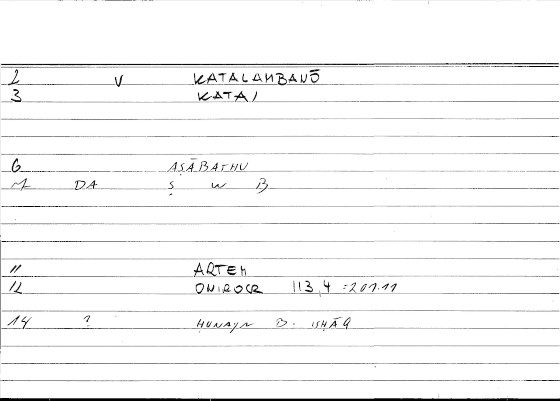 2 V KATALAMBANŌ
3 KATAI
6 AṢĀBATHU
M DA Ṣ W B
11 ARTEM
12 ONIROCR 113,4 =201.11
14 ? ḤUNAYN B. ISḤĀQ